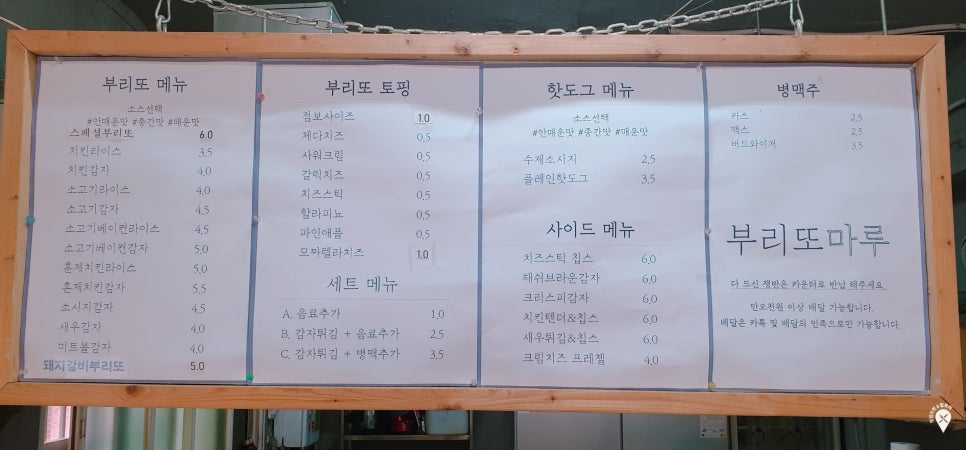 부리또 메뉴
소스선택
#안매운맛 #중간맛 #매운맛
스페셜부리또 6.0
치킨라이스 3.5
치킨감자 4.0
소고기라이스 4.0
소고기감자 4.5
소고기베이컨라이스 4.5
소고기베이컨감자 5.0
훈제치킨라이스 5.0
훈제치킨감자 5.5
소시지감자 4.5
새우감자 4.0
미트볼감자 4.0
돼지갈비부리또 5.0
부리또 토핑
점보사이즈 1.0
체다치즈 0.5
사워크림 0.5
갈릭치즈 0.5
치즈스틱 0.5
할라피뇨 0.5
파인애플 0.5
모짜렐라치즈 1.0
세트 메뉴
A. 음료추가 1.0
B. 감자튀김 + 음료추가 2.5
C. 감자튀김 + 병맥추가 3.5
핫도그 메뉴
소스선택
#안매운맛 #중간맛 #매운맛
수제소시지 2.5
플레인핫도그 3.5
사이드 메뉴
치즈스틱 칩스 6.0
해쉬브라운감자 6.0
크리스피감자 6.0
치킨텐더&칩스 6.0
새우튀김&칩스 6.0
크림치즈 프레첼 4.0
병맥주
카스 2.5
맥스 2.5
버드와이저 3.5
부리또마루
다 드신 쟁반은 카운터로 반납 해주세요.
만오천원 이상 배달 가능합니다.
배달은 카톡 및 배달의 민족으로만 가능합니다.